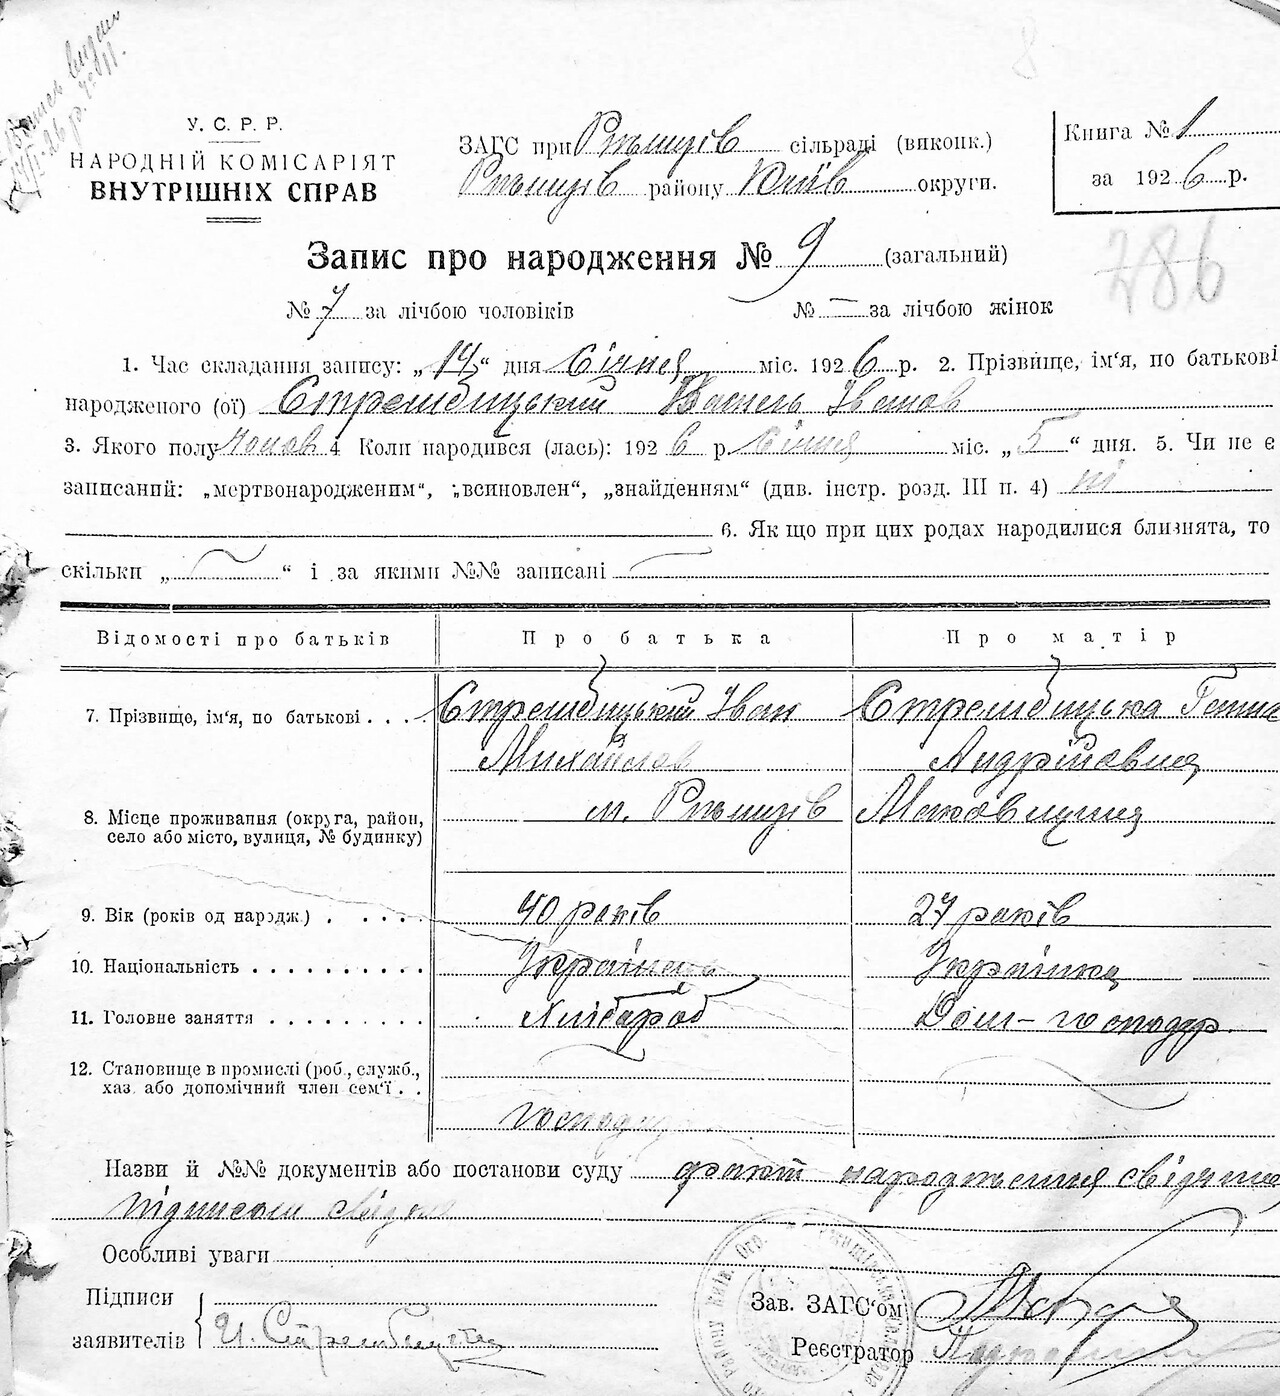 У. С. Р. Р.
НАРОДНІЙ КОМІСАРІЯТ
ВНУТРІШНІХ СПРАВ
ЗАГС при Ржищів сільраді (виконк.)
Ржищів району Київ округи.
Книга № 1
за 1926 р.
Запис про народження № 9 (загальний)
286
№ 7 за лічбою чоловіків № — за лічбою жінок
1. Час складання запису: „14“ дня Січня міс. 1926 р. 2. Прізвище, ім'я, по батькові
народженого (ої) Стрембицький Василь Іванов
3. Якого полу чолов 4 Коли народився (лась): 1926 р. Січня міс. „5“ дня. 5. Чи не є
записаний: „мертвонародженим“, „всиновлен“, „знайденням“ (див. інстр. розд. III п. 4) ні
6. Як що при цих родах народилися близнята, то
скільки „ “ і за якими №№ записані
Відомості про батьків Про батька Про матір
7. Прізвище, ім'я, по батькові . . . . Стрембицький Іван Стрембицька Ганна
Михайлов Андріївна
8. Місце проживання (округа, район,
село або місто, вулиця, № будинку)
м. Ржищів
9. Вік (років од народж.) . . . . . 40 років 27 років
10. Національність . . . . . . . . . . Українець Українка
11. Головне заняття . . . . . . . . . Хлібороб Дом-господар.
12. Становище в промислі (роб., служб.,
хаз. або допомічний член сем'ї . .
господар
Назви й №№ документів або постанови суду факт народження свідчив
підписом
Особливі уваги
Підписи
заявителів И. Стрембицький
Зав. ЗАГС'ом
Реєстратор